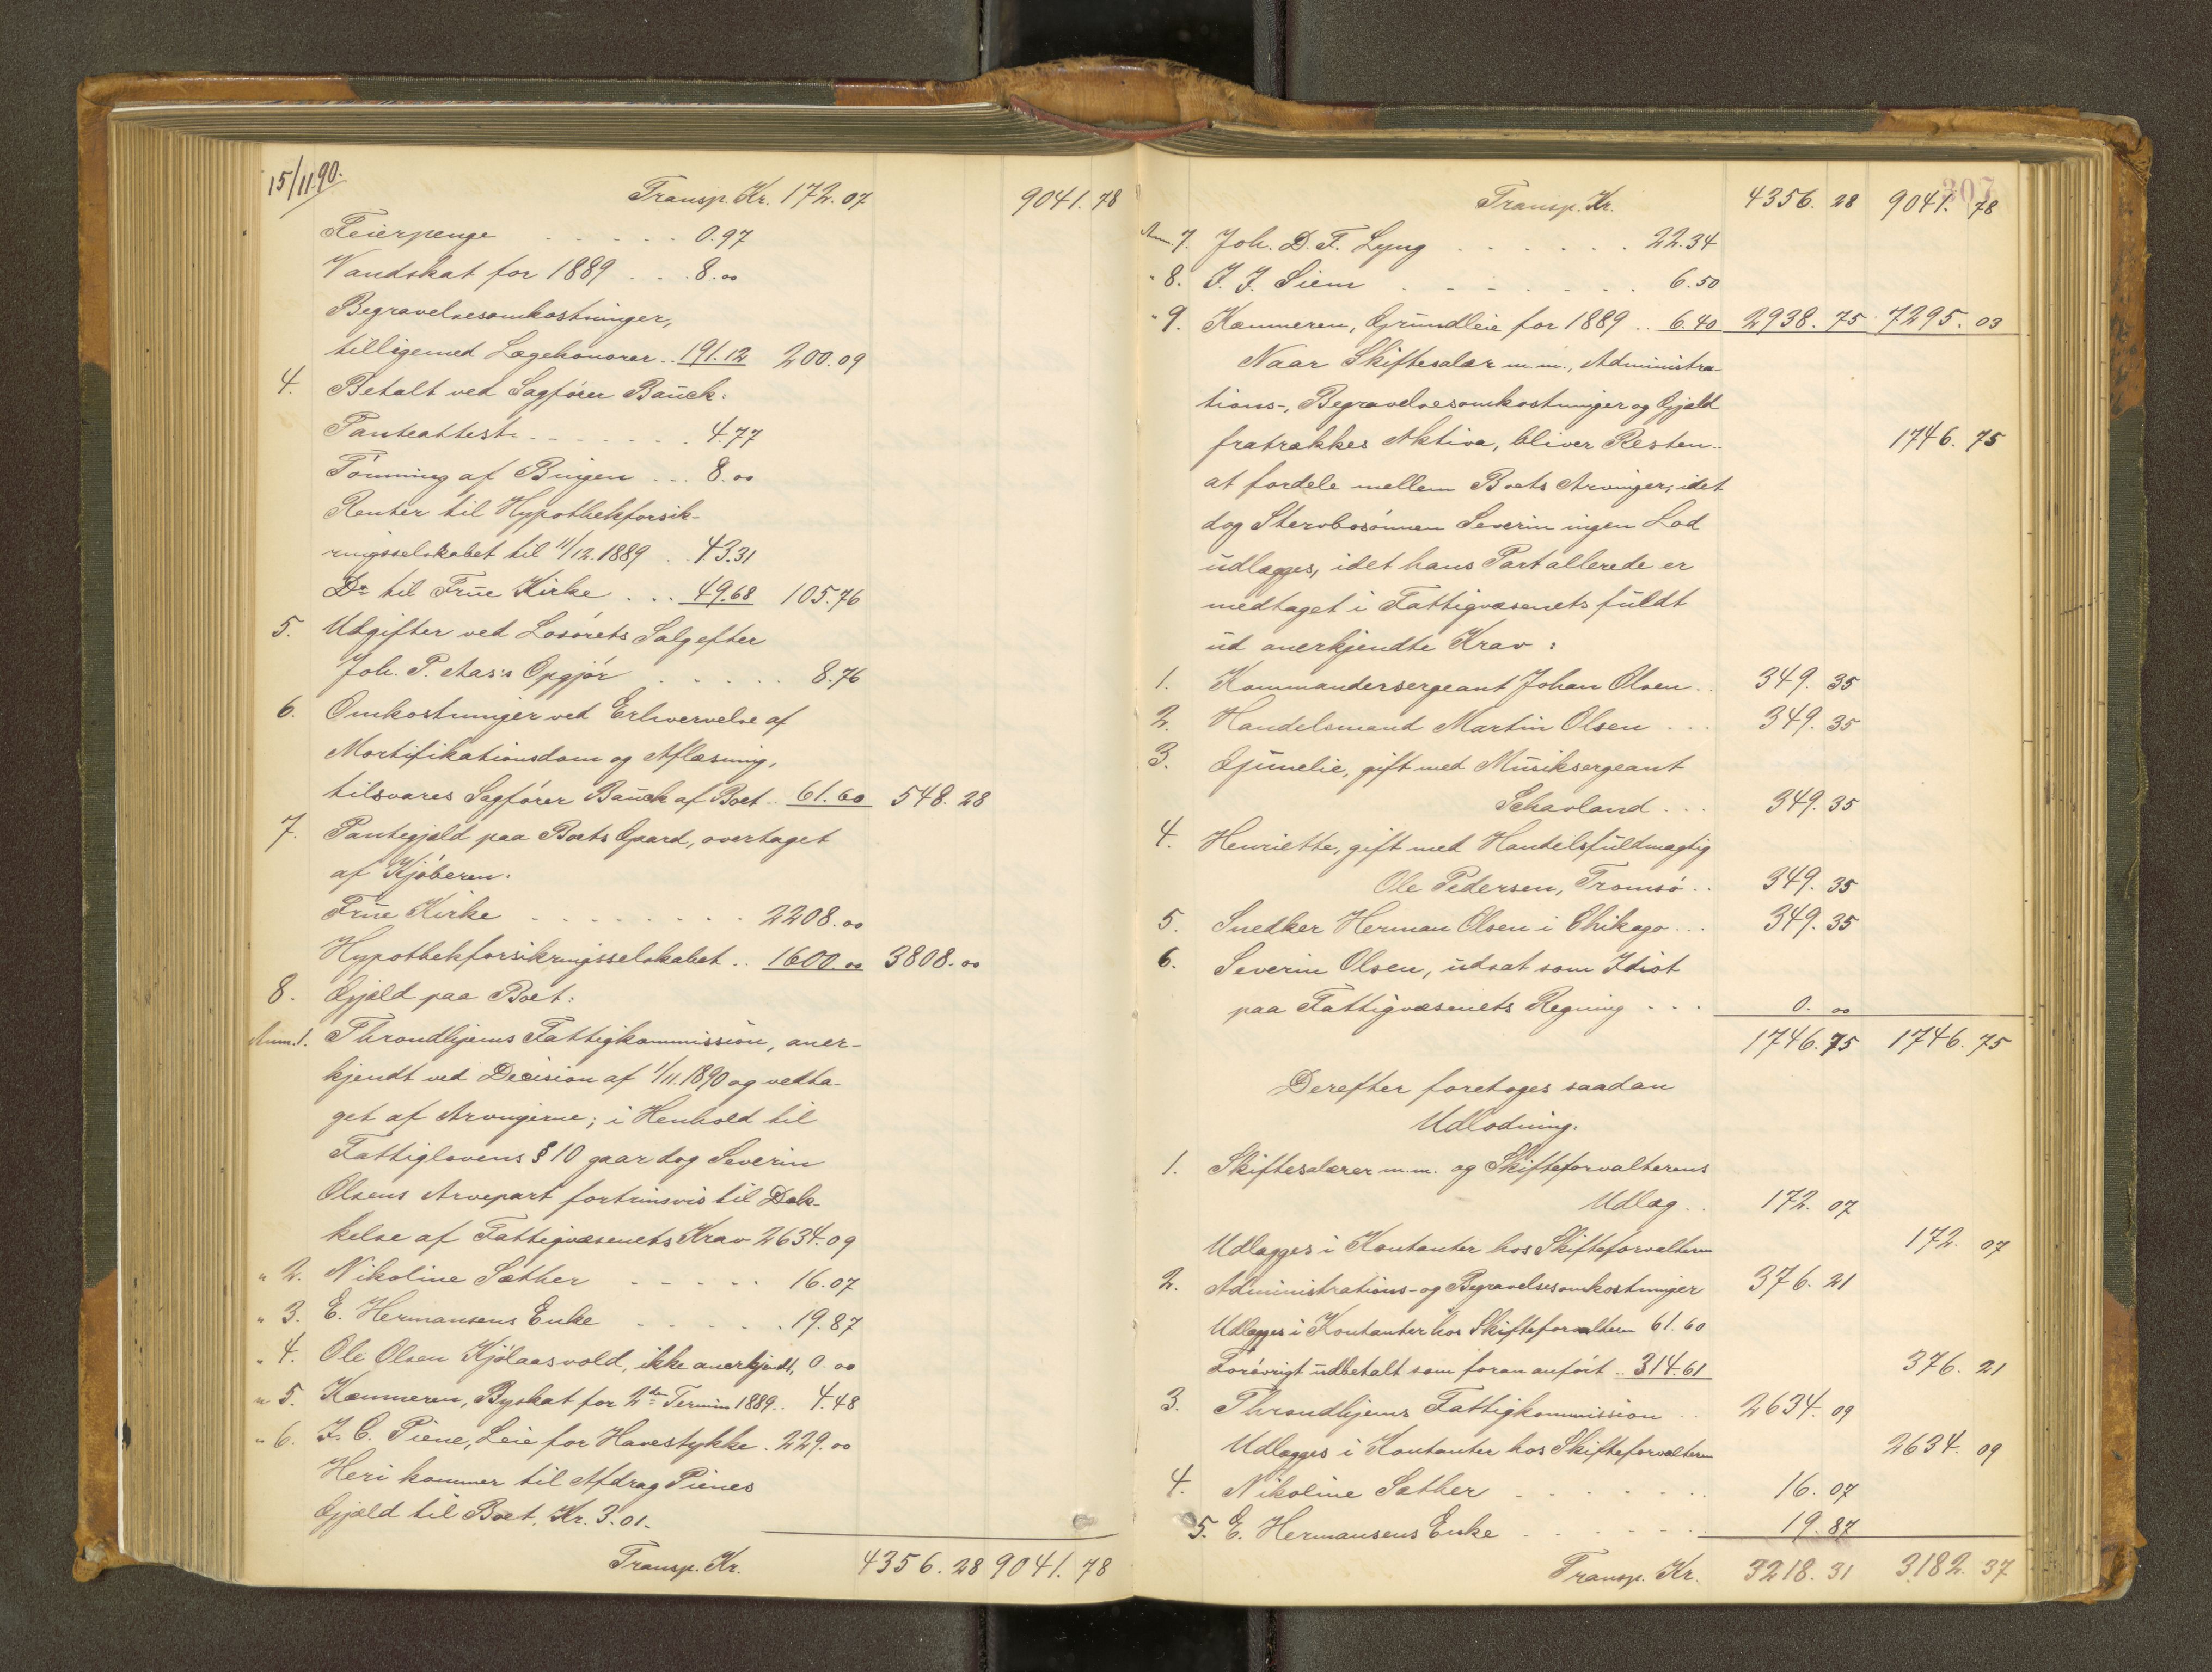 15/11 90.
Transp. Kr. 172.07 9041.78
Feierpenge . . . . . 0.97
Vandskat for 1889 . . . 8.00
Begravelsesomkostninger,
tilligemed Lægehonorar . . 191.12 200.09
4. Betalt ved Sagfører Bauck:
Panteattest . . . . . . . 4.77
Tömning af Bingen . . . 8.00
Renter til Hypothekforsik-
ringsselskabet til 11/12.1889 . . 43.31
Do til Frue Kirke . . . 49.68 105.76
5. Udgifter ved Løsørets Salg efter
Joh. P. Aas's Opgjør . . . . . 8.76
6. Omkostninger ved Erhvervelse af
Mortifikationsdom og Aflæsning,
tilsvares Sagfører Bauck af Boet . . 61.60 548.28
7. Pantegjæld paa Boets Gaard, overtaget
af Kjøberen:
Frue Kirke . . . . . . . . 2208.00
Hypothekforsikringsselskabet . . 1600.00 3808.00
8. Gjæld paa Boet:
Anm. 1. Throndhjems Fattigkommission, aner-
kjendt ved Decision af 1/11.1890 og vedta-
get af Arvingerne; i Henhold til
Fattiglovens § 10 gaar dog Severin
Olsens Arvepart fortrinsvis til Dæk-
kelse af Fattigvæsenets Krav 2634.09
" 2. Nikoline Sæther . . . . . 16.07
" 3. E. Hermansens Enke . . . . . . 19.87
" 4. Ole Olsen Kjölaasvold, ikke anerkjendt, 0.00
" 5. Kæmneren, Byskat for 2den Termin 1889 . . 4.48
" 6. J. C. Piene, Leie for Havestykke . 229.00
Heri kommer til Afdrag Pienes
Gjæld til Boet, Kr. 3.01.
Transp. Kr. 4356.28 9041.78
307
Transp. Kr. 4356.28 9041.78
Anm. 7. Joh. D. F. Lyng . . . . . . 22.34
" 8. J. J. Siem . . . . . . . 6.50
" 9. Kæmneren, Grundleie for 1889 . . 6.40 2938.75 7295.03
Naar Skiftesalær m.m., Administra-
tions-, Begravelsesomkostninger og Gjæld
fratrækkes Aktiva, bliver Resten . . 1746.75
at fordele mellem Boets Arvinger, idet
dog Stervbosønnen Severin ingen Lod
udlægges, idet hans Part allerede er
medtaget i Fattigvæsenets fuldt
ud anerkjendte Krav:
1. Kommandersergeant Johan Olsen . . 349.35
2. Handelsmand Martin Olsen . . . 349.35
3. Gunelie, gift med Musiksergeant
Schavland . . . 349.35
4. Henriette, gift med Handelsfuldmægtig
Ole Pedersen, Tromsø . . 349.35
5. Snedker Herman Olsen i Chikago . . . 349.35
6. Severin Olsen, udsat som Idiot
paa Fattigvæsenets Regning . . . 0.00
1746.75 1746.75
Derefter foretages saadan
Udlodning.
1. Skiftesalærer m.m. og Skifteforvalterens
Udlæg . . 172.07
Udlægges i Kontanter hos Skifteforvalteren 172.07
2. Administrations- og Begravelsesomkostninger 376.21
Udlægges i Kontanter hos Skifteforvalteren 61.60
Forøvrigt udbetalt som foran anført . . 314.61 376.21
3. Throndhjems Fattigkommission . . 2634.09
Udlægges i Kontanter hos Skifteforvalteren 2634.09
4. Nikoline Sæther . . . . . . 16.07
5. E. Hermansens Enke . . . . . . 19.87
Transp. Kr. 3218.31 3182.37